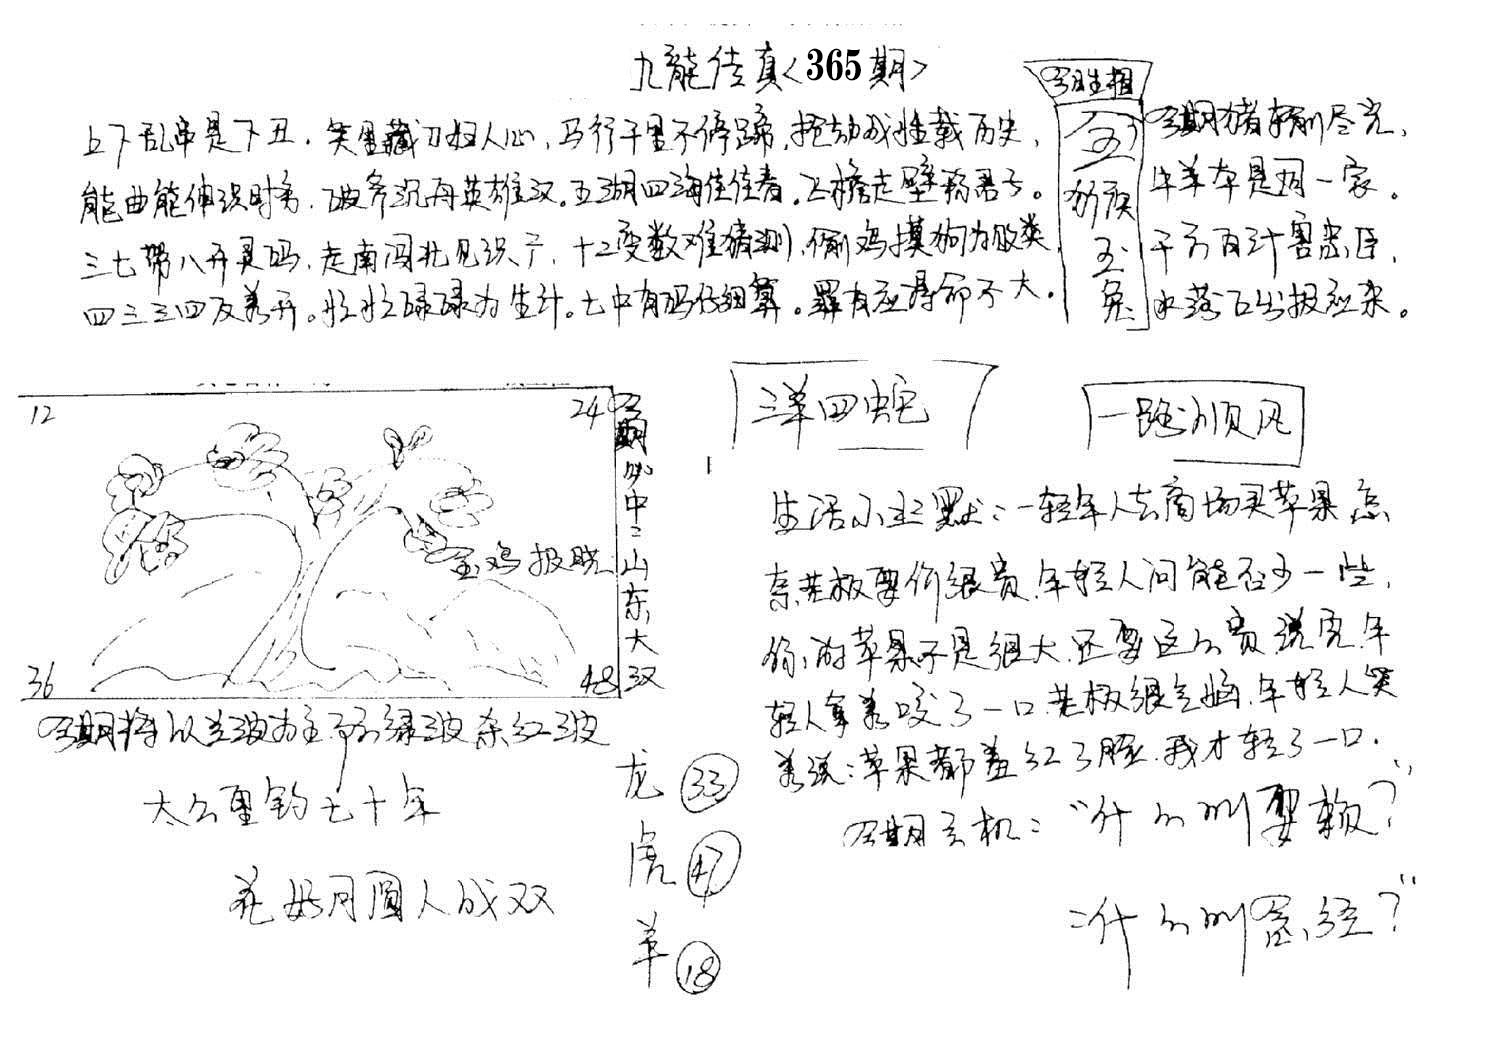 九龍传真<365期>
上下乱串是下丑，笑里藏刀妇人心，马行千里不停蹄，
能曲能伸识时务，破斧沉舟英雄汉。五湖四海佳佳者。飞檐走壁
三七带八开灵码，走南闯北见识广，十二变数难猜测，偷鸡摸狗为败类，
四三三四反着开。忙忙碌碌为生计。七中有码仔细算。罪有应得命不大。
今期生相
玉猴玉兔
今期猪精偷尽光，
牛羊本是同一家。
千方百计害忠臣，
水落石出报应来。
12
24
36
48
金鸡报晓
今期必中：山东大汉
今期特以兰波为主防绿波杀红波
太公垂钓七十年
花好月圆人成双
龙 33
虎 47
羊 18
三羊四蛇
一路顺风
生活小幽默：一年轻人去商场买苹果怎
奈老板要价很贵，年轻人问能否少一些，
你的苹果不是很大，还要这么贵，说完，年
轻人拿着咬了一口，老板很气恼，年轻人笑
着说：苹果都羞红了脸，我才轻了一口．
今期玄机："什么叫耍赖？"
："什么叫